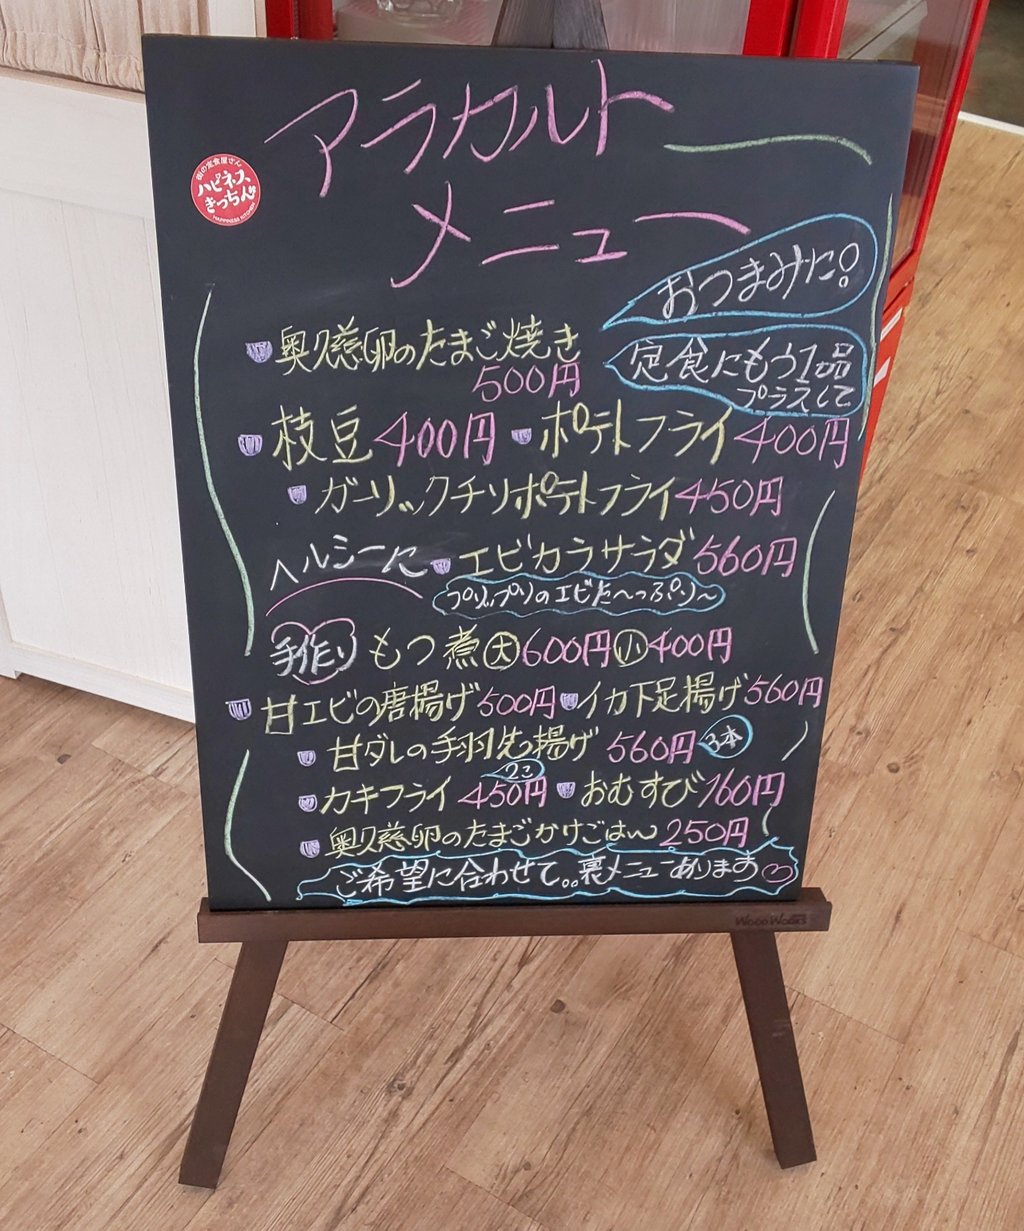 アラカルト
メニュー
街の定食屋さん
ハピネス
きっちん
HAPPINESS KITCHEN
おつまみに!
奥久慈卵のたまご焼き
500円
定食にもう1品
プラスして
枝豆 400円 ポテトフライ 400円
ガーリックチリポテトフライ 450円
ヘルシーに エビカラサラダ 560円
プリップリのエビたーっぷり〜
手作り もつ煮 大 600円 小 400円
甘エビの唐揚げ 500円 イカ下足揚げ 560円
甘ダレの手羽先揚げ 560円 3本
カキフライ 2コ 450円 おむすび 160円
奥久慈卵のたまごかけごはん 250円
ご希望に合わせて。。裏メニューあります♡
WOOD WORKS